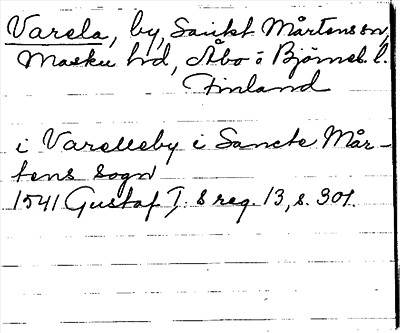 Varela, by, Sankt Mårtens sn,
Masku hd, Åbo o Björneb. l.
Finland
i Varelleby i Sancte Mår-
tens sogn
1541 Gustaf I:s reg. 13, s. 301.